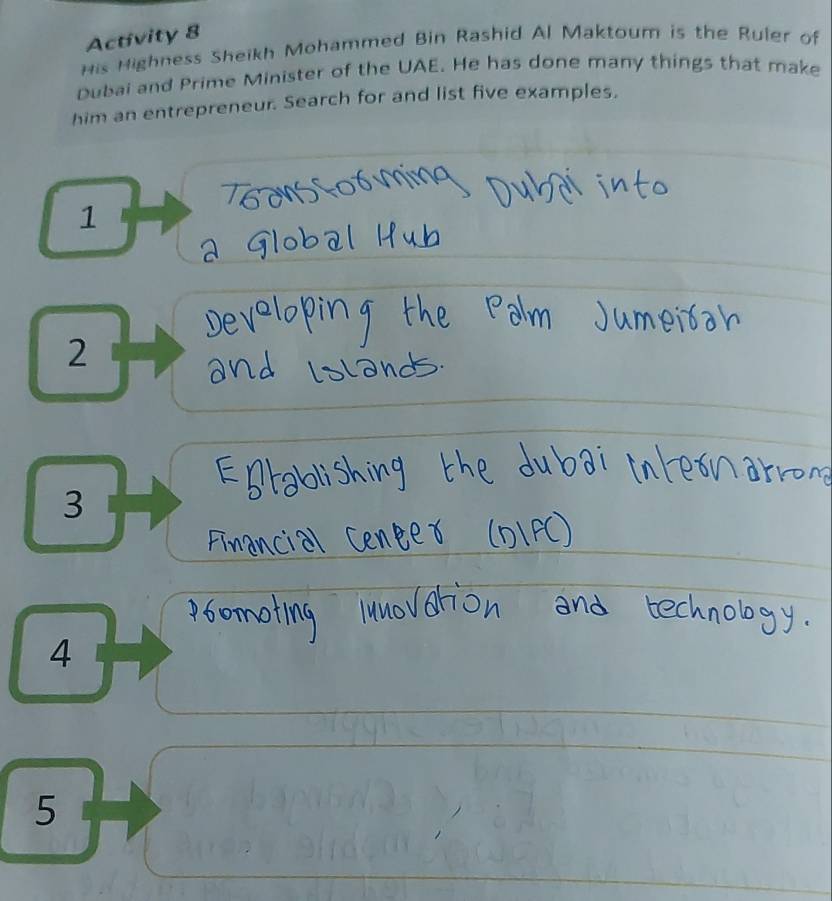 Activity 8
His Highness Sheikh Mohammed Bin Rashid Al Maktoum is the Ruler of
Dubai and Prime Minister of the UAE. He has done many things that make
him an entrepreneur. Search for and list five examples.
1
Transforming Dubai into
a Global Hub
2
Developing the Palm Jumeirah
and Islands.
3
Establishing the dubai international
Financial Center (DIFC)
4
Promoting innovation and technology.
5